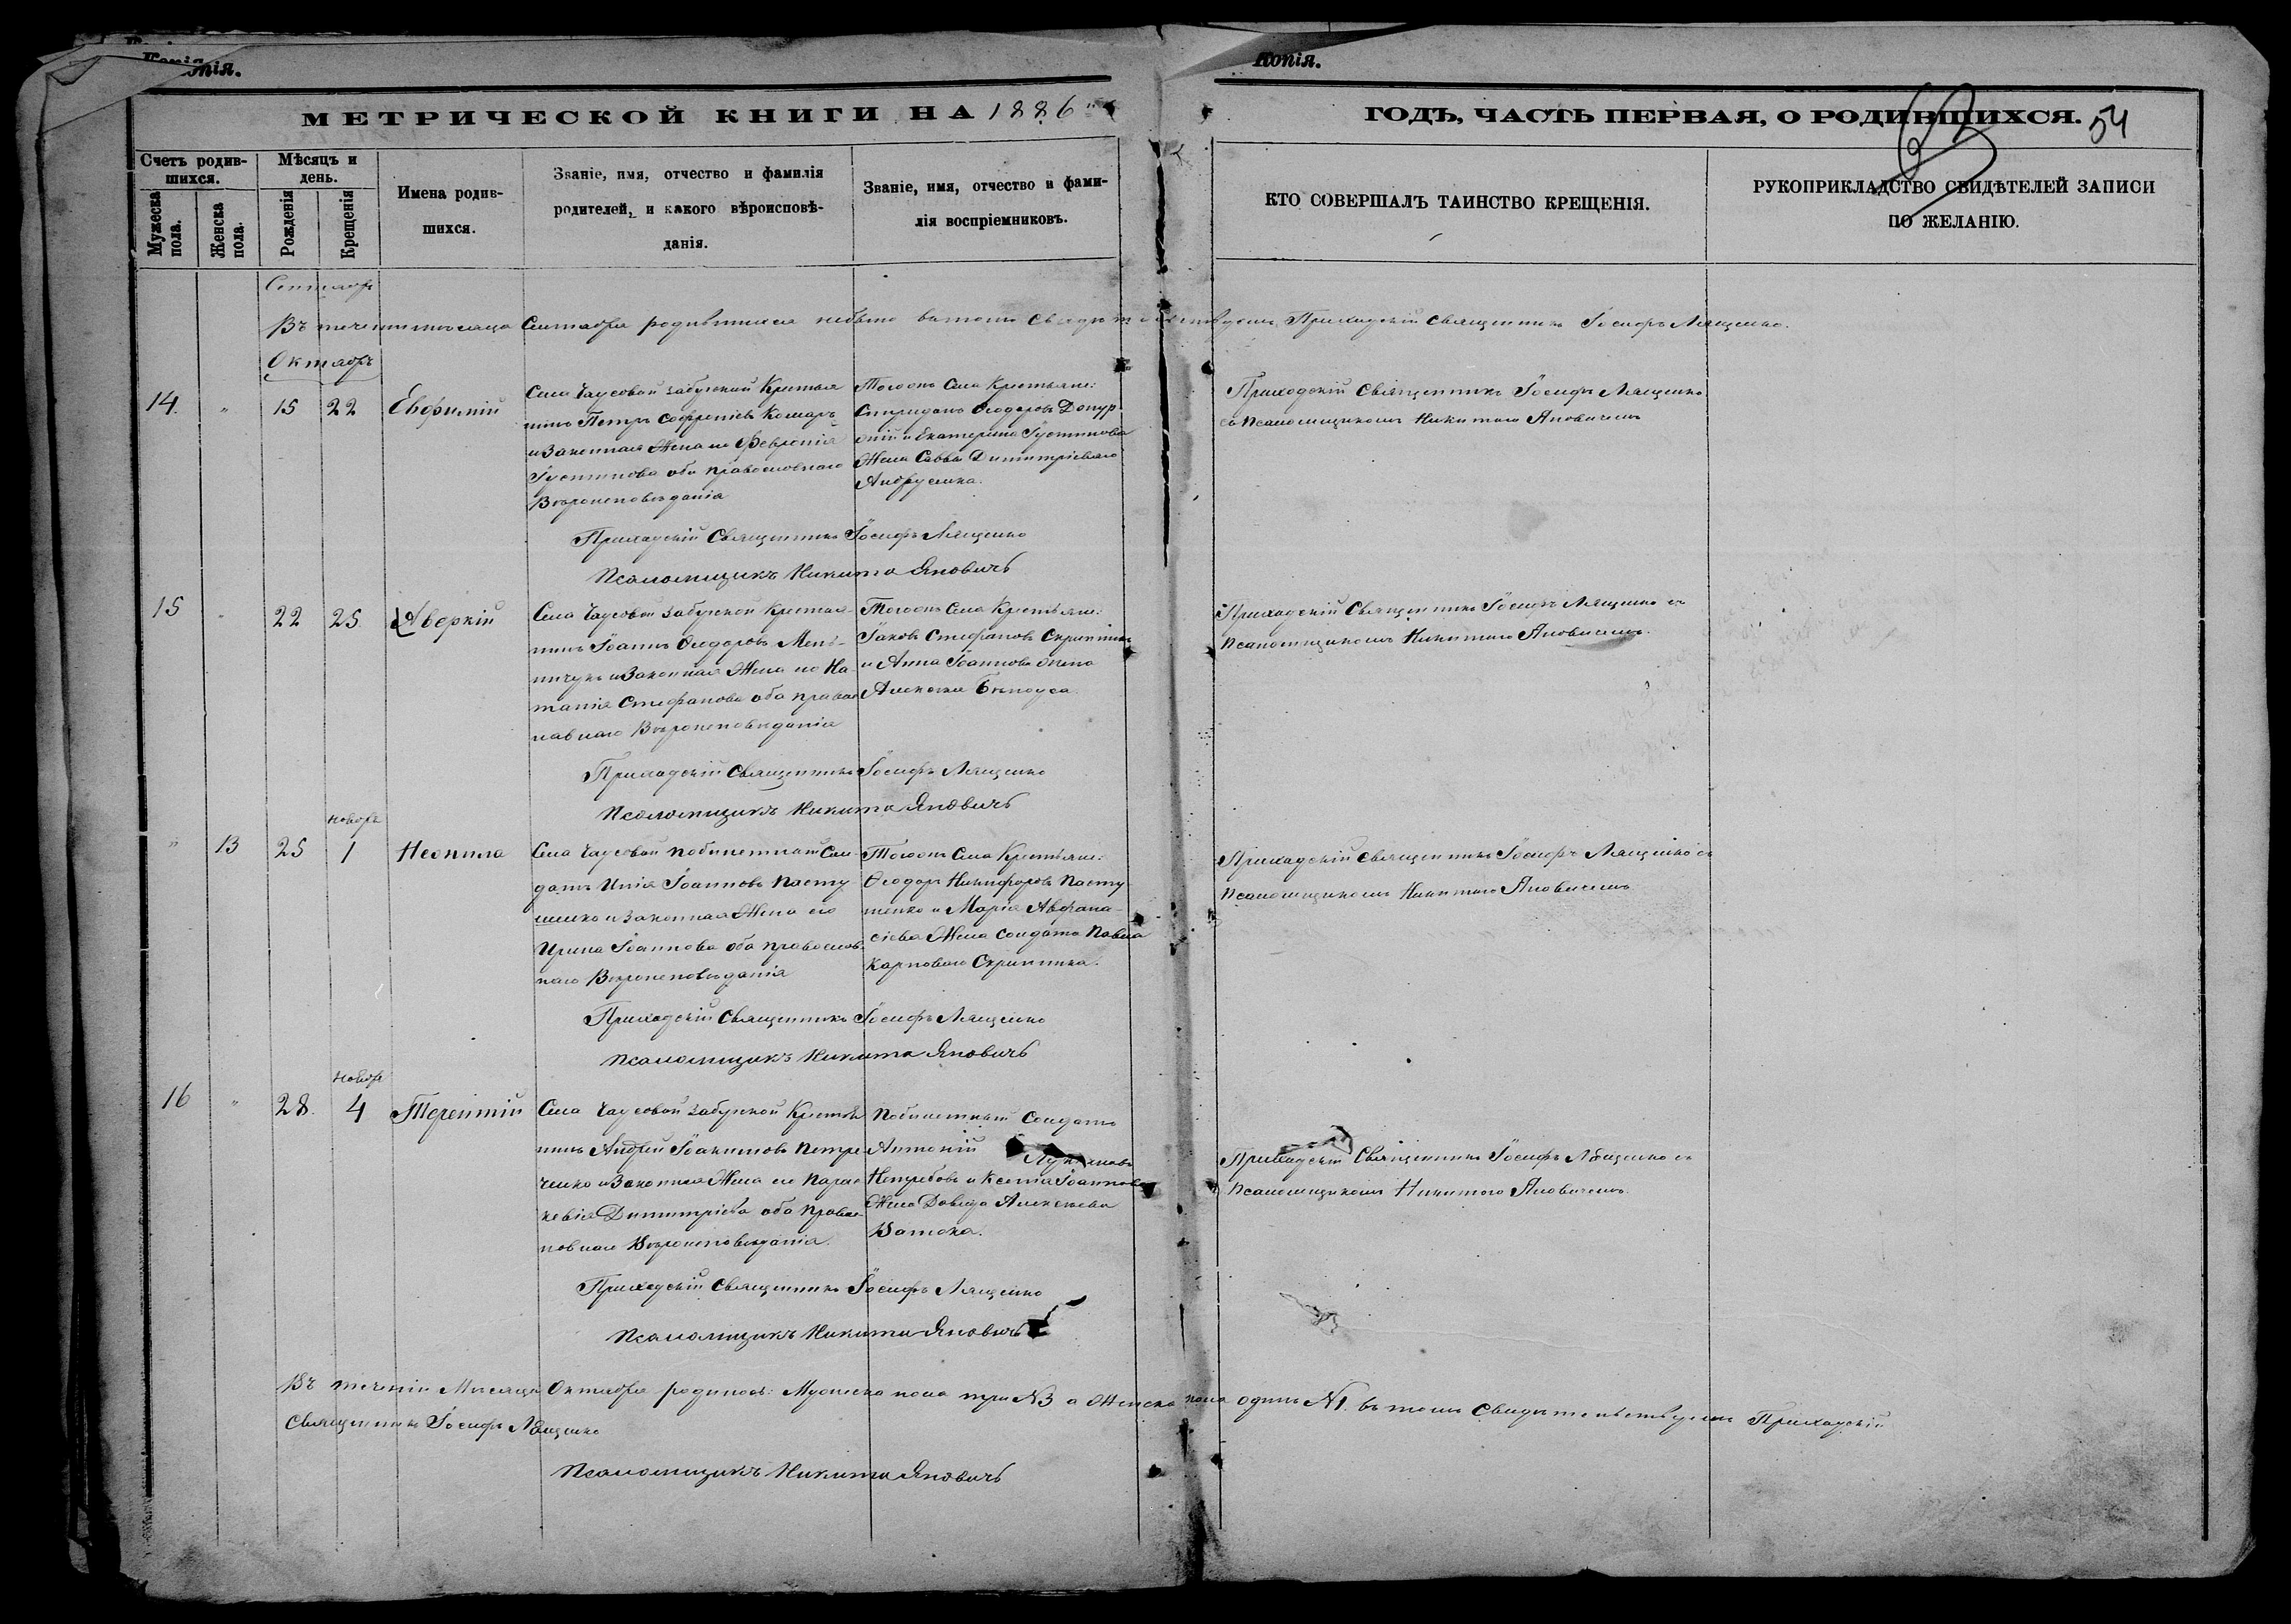 Копія.
МЕТРИЧЕСКОЙ КНИГИ НА 1886
Счетъ родив-
шихся.
Мужеска
пола.
Женска
пола.
Мѣсяцъ и
день.
Рожденія
Крещенія
Имена родив-
шихся.
Званіе, имя, отчество и фамилія
родителей, и какого вѣроисповѣ-
данія.
Званіе, имя, отчество и фами-
лія воспріемниковъ.
Копія.
ГОДЪ, ЧАСТЬ ПЕРВАЯ, О РОДИВШИХСЯ. 54
КТО СОВЕРШАЛЪ ТАИНСТВО КРЕЩЕНІЯ.
РУКОПРИКЛАДСТВО СВИДѢТЕЛЕЙ ЗАПИСИ
ПО ЖЕЛАНІЮ.
Сентябрь
Въ теченіи мѣсяца Сентября родившихся небыло вътомъ свидѣтельствуемъ Приходскій священникъ Іосифъ Лященко.
Октябрь
14. " 15 22 Евфимій
Села Чаусовой забужной Крестья
нинъ Петръ Софроніевъ Комаръ
и Законная Жена его Февронія
Іустинова оба православнаго
Вѣроисповѣданія
Тогожъ Села Крестьяне:
Спиридонъ Ѳеодоровъ
и Екатерина Іустинова
Жена Саввы Димитріеваго
Андрущика.
Приходскій Священникъ Іосифъ Лященко
съ Псаломщикомъ Никитою Яновичемъ
Приходскій Священникъ Іосифъ Лященко
Псаломщикъ Никита Яновичъ
15 " 22 25 Аверкій
Села Чаусовой забужной Крестья-
нинъ Іоаннъ Ѳеодоровъ Мель-
ничукъ и Законная Жена его На
талія Стефанова оба правос
лавнаго Вѣроисповѣданія
Тогожъ Села Крестьяне:
Іаковъ Стефановъ Скрипникъ
и Анна Іоаннова жена
Алексія Бѣлоуса.
Приходскій Священникъ Іосифъ Лященко съ
Псаломщикомъ Никитою Яновичемъ.
Приходскій Священникъ Іосифъ Лященко
Псаломщикъ Никита Яновичъ
" 13 25 Ноябрь 1 Неонила
Села Чаусовой побилетный Сол
датъ Илія Іоанновъ Пасту
шенко и законная Жена его
Ирина Іоаннова оба православ
наго Вѣроисповѣданія
Тогожъ Села Крестьяне:
Ѳеодоръ Никифоровъ Пасту
шенко и Марія Аѳана-
сіева Жена солдата Павла
Карповаго Скрипника.
Приходскій священникъ Іосифъ Лященко съ
Псаломщикомъ Никитою Яновичемъ
Приходскій Священникъ Іосифъ Лященко
Псаломщикъ Никита Яновичъ
16 " 28. Ноябрь 4 Терентій
Села Чаусовой забужной Крестья
нинъ Андрей Іоакимовъ Петре
ченко и Законная Жена его Парас
кевія Димитріева оба правос
лавнаго Вѣроисповѣданія.
Побилетный Солдатъ
Антоній
и Ксенія Іоаннова
Жена Давида Алексѣева
Ватока.
Приходскій Священникъ Іосифъ Лященко съ
Псаломщикомъ Никитою Яновичемъ.
Приходскій Священникъ Іосифъ Лященко
Псаломщикъ Никита Яновичъ
Въ теченіи Мѣсяца Октября родилось: Мужеска пола три №3 а Женска пола одинъ №1. въ томъ Свидѣтельствуемъ Приходскій
Священникъ Іосифъ Лященко
Псаломщикъ Никита Яновичъ